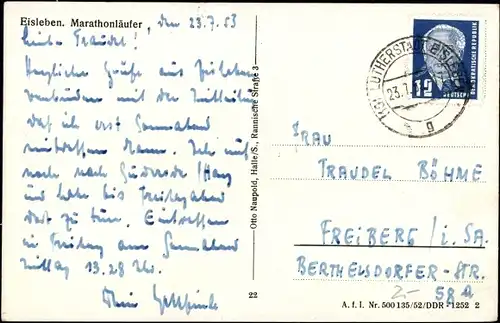 Eisleben. Marathonläufer, den 23.7.53
Liebe Traudel!
Herzliche Grüße aus Eisleben
verbunden mit der Mitteilung
daß ich erst Sonnabend
eintreffen kann. Ich muß
noch nach Günterode / Harz
und habe bis Freitagabend
dort zu tun. Eintreffen
in Freiberg am Sonnabend
Mittag 13.28 Uhr.
Dein
Otto Naupold, Halle/S., Rannische Straße 3
22
LUTHERSTADT EISLEBEN
23.7.
g
12
DEUTSCHE DEMOKRATISCHE REPUBLIK
FRAU
TRAUDEL BÖHME
FREIBERG / i. SA.
BERTHELSDORFER-STR.
58a
2.-
A. f. I. Nr. 500 135/52/DDR - 1252 2